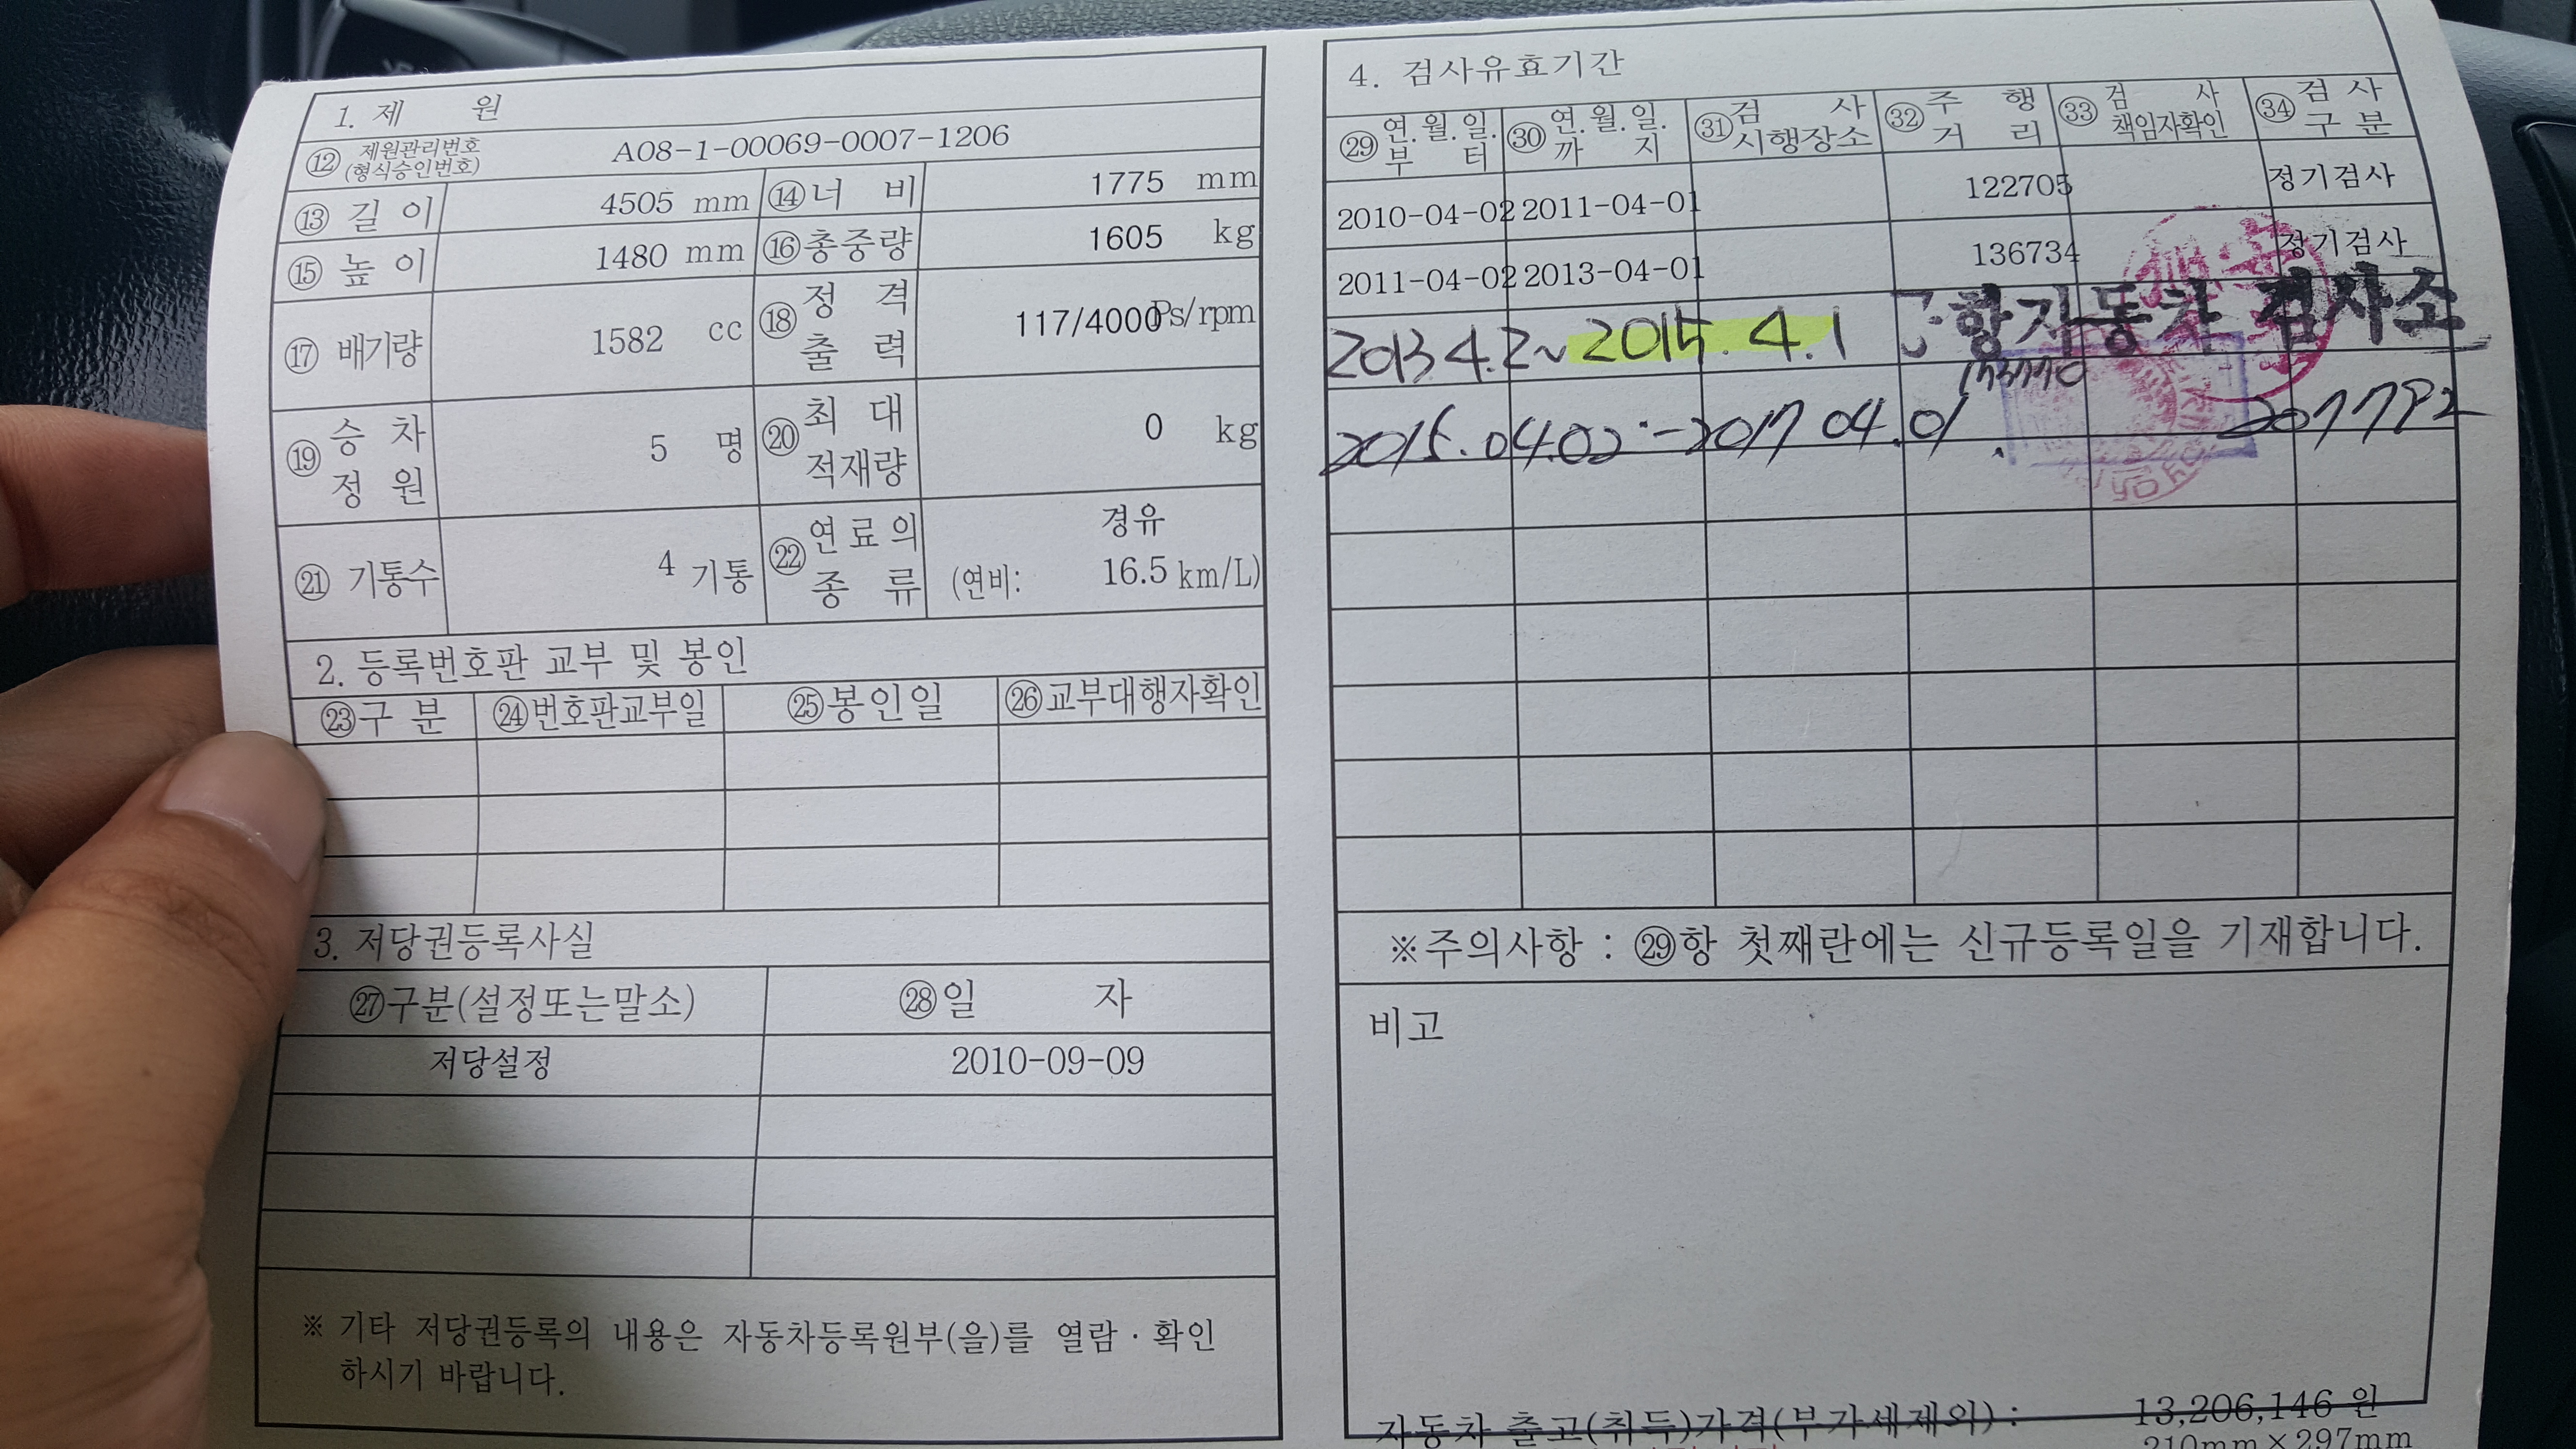 1. 제 원
⑫ 제원관리번호 (형식승인번호) A08-1-00069-0007-1206
⑬ 길이 4505 mm ⑭ 너비 1775 mm
⑮ 높이 1480 mm ⑯ 총중량 1605 kg
⑰ 배기량 1582 cc ⑱ 정격출력 117/4000Ps/rpm
⑲ 승차정원 5 명 ⑳ 최대적재량 0 kg
㉑ 기통수 4 기통 ㉒ 연료의종류 경유
(연비: 16.5 km/L)
2. 등록번호판 교부 및 봉인
㉓구 분 ㉔번호판교부일 ㉕봉인일 ㉖교부대행자확인
3. 저당권등록사실
㉗구분(설정또는말소) ㉘일 자
저당설정 2010-09-09
※ 기타 저당권등록의 내용은 자동차등록원부(을)를 열람 · 확인
하시기 바랍니다.
4. 검사유효기간
㉙ 연.월.일.부터 ㉚ 연.월.일.까지 ㉛ 검사시행장소 ㉜ 주행거리 ㉝ 검사책임자확인 ㉞ 검사구분
2010-04-02 2011-04-01 122705 정기검사
2011-04-02 2013-04-01 136734 정기검사
2013 4.2~2015.4.1 항자동차 검사소
2015.04.02.-2017 04.01.
※주의사항 : ㉙항 첫째란에는 신규등록일을 기재합니다.
비고
자동차 출고(취득)가격(부가세제외) : 13,206,146 원
210mm×297mm